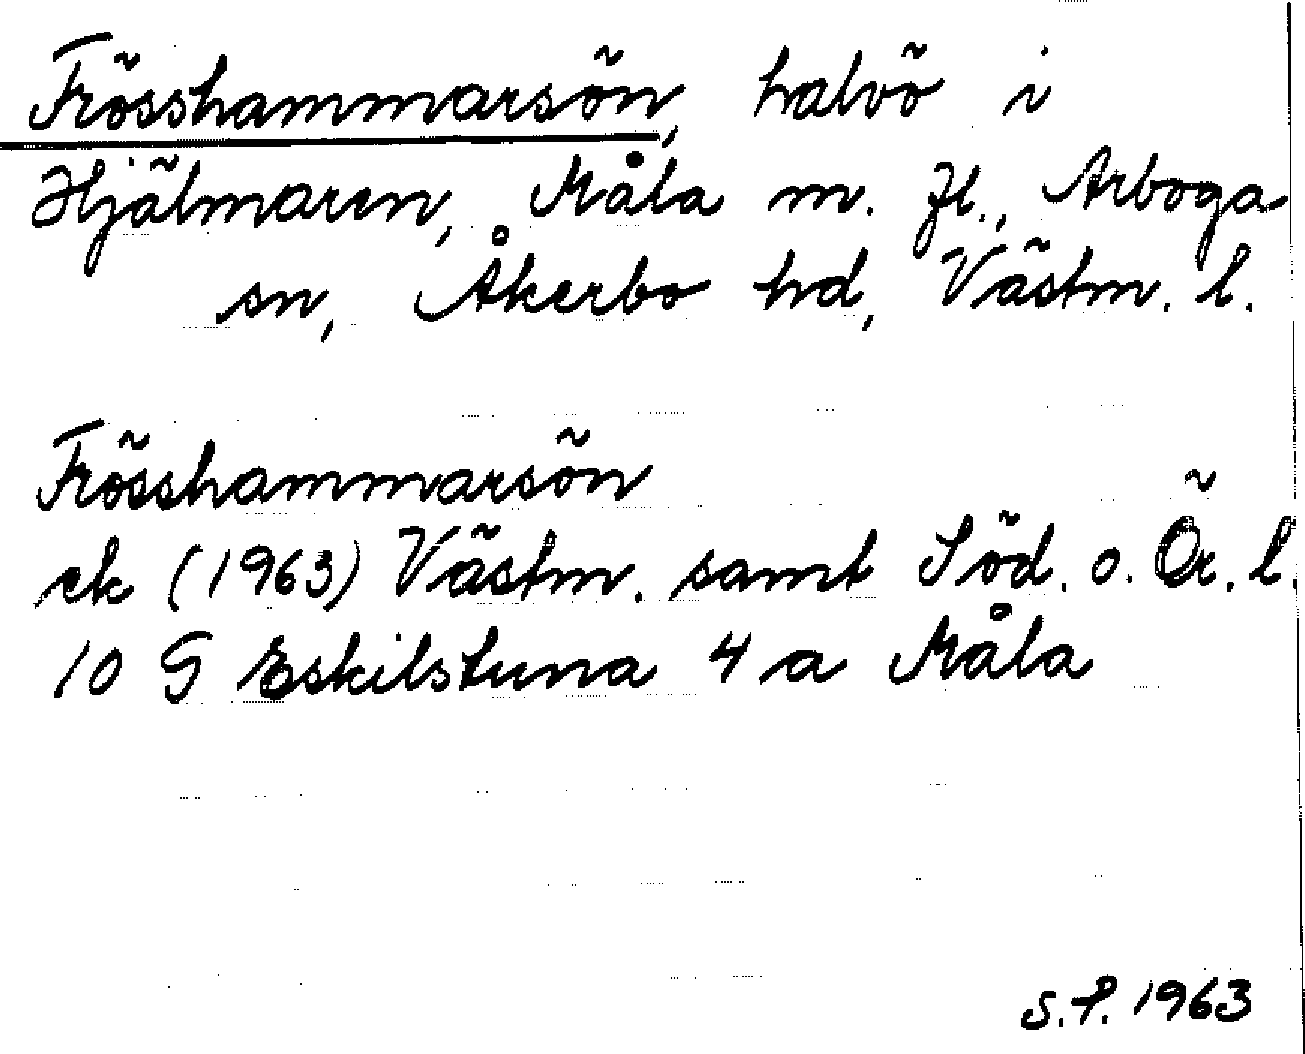 Frösshammarsön, halvö i
Hjälmaren, Måla m. fl., Arboga
sn, Åkerbo hd, Västm. l.
Frösshammarsön
ek (1963) Västm. samt Söd. o. Ör. l.
10 G Eskilstuna 4 a Måla
S.P. 1963